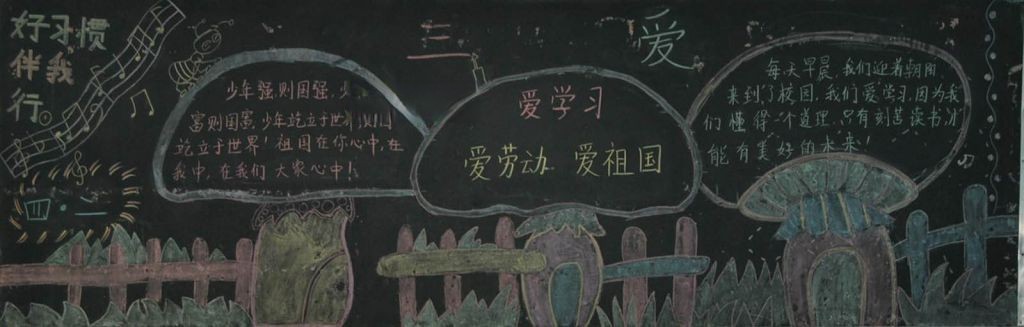 好习惯
伴我
行。
三 爱
少年强则国强，少
富则国富，少年屹立于世
屹立于世界！祖国在你心中，在
我中，在我们大家心中！
爱学习
爱劳动 爱祖国
每天早晨，我们迎着朝阳
来到了校园，我们爱学习，因为我
们懂得一个道理，只有刻苦读书，才
能有美好的未来！